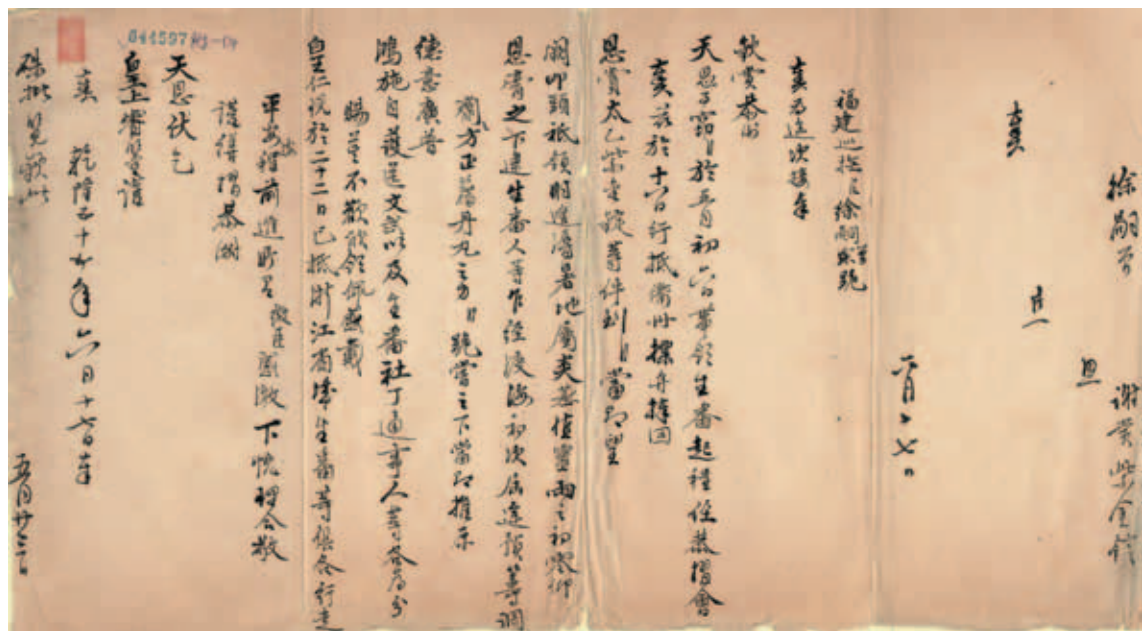 徐嗣曾
謝賞紫金錠
恩
六月十七日
奏
福建巡撫臣徐嗣曾跪
奏為途次接奉
欽賞恭謝
天恩事竊臣於五月初六日帶領生番起程住恭摺會
奏茲於十六日行抵衢州摺弁捧回
恩賞太乙紫金錠等件到臣當即望
闕叩頭祗領明進溽暑地屬炎蒸值霉雨之初
恩膏之下逮生番人等乍經渡海初次屆遠預籌調
方正藉丹丸之力臣跪嘗之下當即推示
德意廣普
鴻施自護送文武以及生番社丁通事人等各為分
賜莫不歡欣領佩感戴
皇仁現於二十二日已抵浙江省城生番等俱各行走
平安前進所有微臣感激下忱理合敬
謹繕摺恭謝
天恩伏乞
皇上睿鑒謹
奏 乾隆五十九年六月十七日奉
硃批覽欽此
五月廿三日
044597